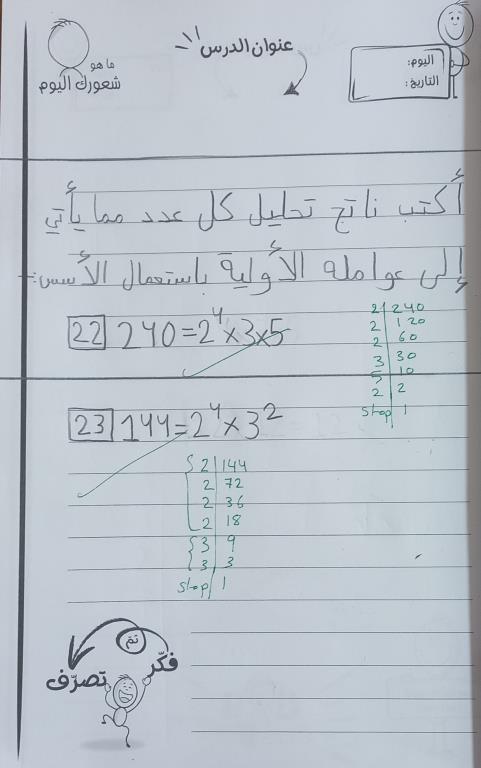 عنوان الدرس
اليوم:
التاريخ:
ما هو
شعورك اليوم
أكتب ناتج تحليل كل عدد مما يأتي
إلى عوامله الأولية باستعمال الأسس:
22 240=2⁴×3×5
2 | 240
2 | 120
2 | 60
3 | 30
5 | 10
2 | 2
stop | 1
23 144=2⁴×3²
2 | 144
2 | 72
2 | 36
2 | 18
3 | 9
3 | 3
stop | 1
فكّر
ثمّ
تصرّف